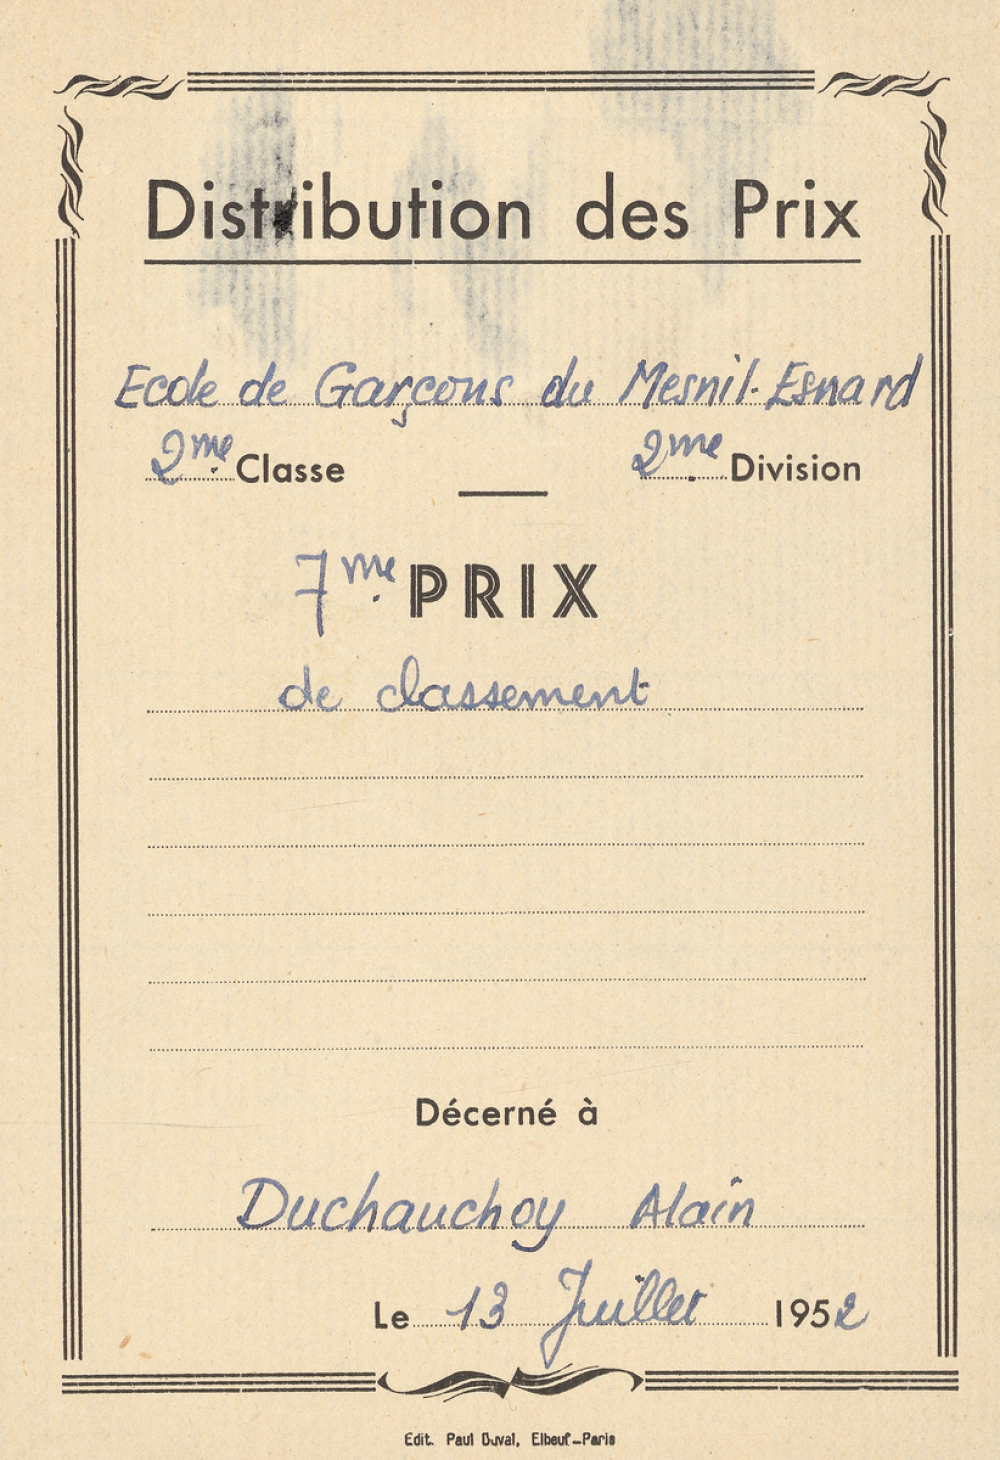 Distribution des Prix
Ecole de Garçons du Mesnil-Esnard
2me. Classe 2me. Division
7me. PRIX
de classement
Décerné à
Duchauchoy Alain
Le 13 Juillet 1952
Edit. Paul Duval, Elbeuf-Paris